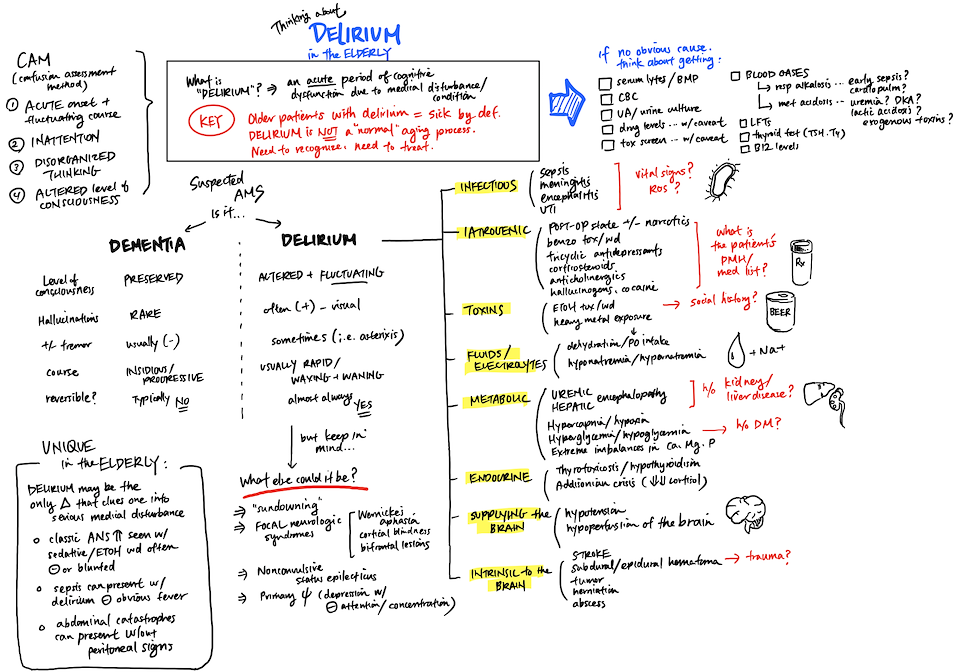 Thinking about
DELIRIUM
in the ELDERLY
CAM
(confusion assessment
method)
① ACUTE onset +
fluctuating course
② INATTENTION
③ DISORGANIZED
THINKING
④ ALTERED level of
CONSCIOUSNESS
What is
"DELIRIUM"? ⇒ an acute period of cognitive
dysfunction due to medical disturbance/
condition
KEY
Older patients with delirium = sick by def.
DELIRIUM is NOT a "normal" aging process.
Need to recognize; need to treat.
if no obvious cause,
think about getting:
□ serum lytes / BMP
□ CBC
□ UA/urine culture
□ drug levels ... w/ caveat
□ tox screen ... w/ caveat
□ BLOOD GASES
↳ resp alkalosis ... early sepsis?
cardiopulm?
↳ met acidosis ... uremia? DKA?
lactic acidosis?
exogenous toxins?
□ LFTs
□ thyroid fxt (TSH, T4)
□ B12 levels
Suspected
AMS
Is it...
DEMENTIA
DELIRIUM
Level of
consciousness
PRESERVED
ALTERED + FLUCTUATING
Hallucinations
RARE
often (+) - visual
+/- tremor
usually (-)
sometimes (i.e. asterixis)
course
INSIDIOUS/
PROGRESSIVE
USUALLY RAPID/
WAXING + WANING
reversible?
Typically NO
almost always YES
but keep in
mind...
What else could it be?
⇒ "sundowning"
⇒ FOCAL neurologic
syndromes
Wernicke's
aphasia
cortical blindness
bifrontal lesions
⇒ Nonconvulsive
status epilepticus
⇒ Primary Ψ (depression w/
⊖ attention/concentration)
UNIQUE
in the ELDERLY:
DELIRIUM may be the
only Δ that clues one into
serious medical disturbance
o classic ANS ⇈ seen w/
sedative/ETOH wd often
⊖ or blunted
o sepsis can present w/
delirium ⊖ obvious fever
o abdominal catastrophes
can present w/out
peritoneal signs
INFECTIOUS
sepsis
meningitis
encephalitis
UTI
vital signs?
ROS?
IATROGENIC
POST-OP state +/- narcotics
benzo tox/wd
tricyclic antidepressants
corticosteroids
anticholinergics
hallucinogens, cocaine
what is
the patient's
PMH/
med list?
Rx
TOXINS
ETOH tox/wd
heavy metal exposure
→ social history?
BEER
FLUIDS/
ELECTROLYTES
dehydration/↓PO intake
hyponatremia/hypernatremia
+ Na+
METABOLIC
UREMIC
HEPATIC encephalopathy
h/o kidney/
liver disease?
Hypercapnia/hypoxia
Hyperglycemia/hypoglycemia
→ h/o DM?
Extreme imbalances in Ca, Mg, P
ENDOCRINE
Thyrotoxicosis/hypothyroidism
Addisonian crisis (↓↓ cortisol)
SUPPLYING the
BRAIN
hypotension
hypoperfusion of the brain
INTRINSIC to the
BRAIN
STROKE
subdural/epidural hematoma
→ trauma?
tumor
herniation
abscess